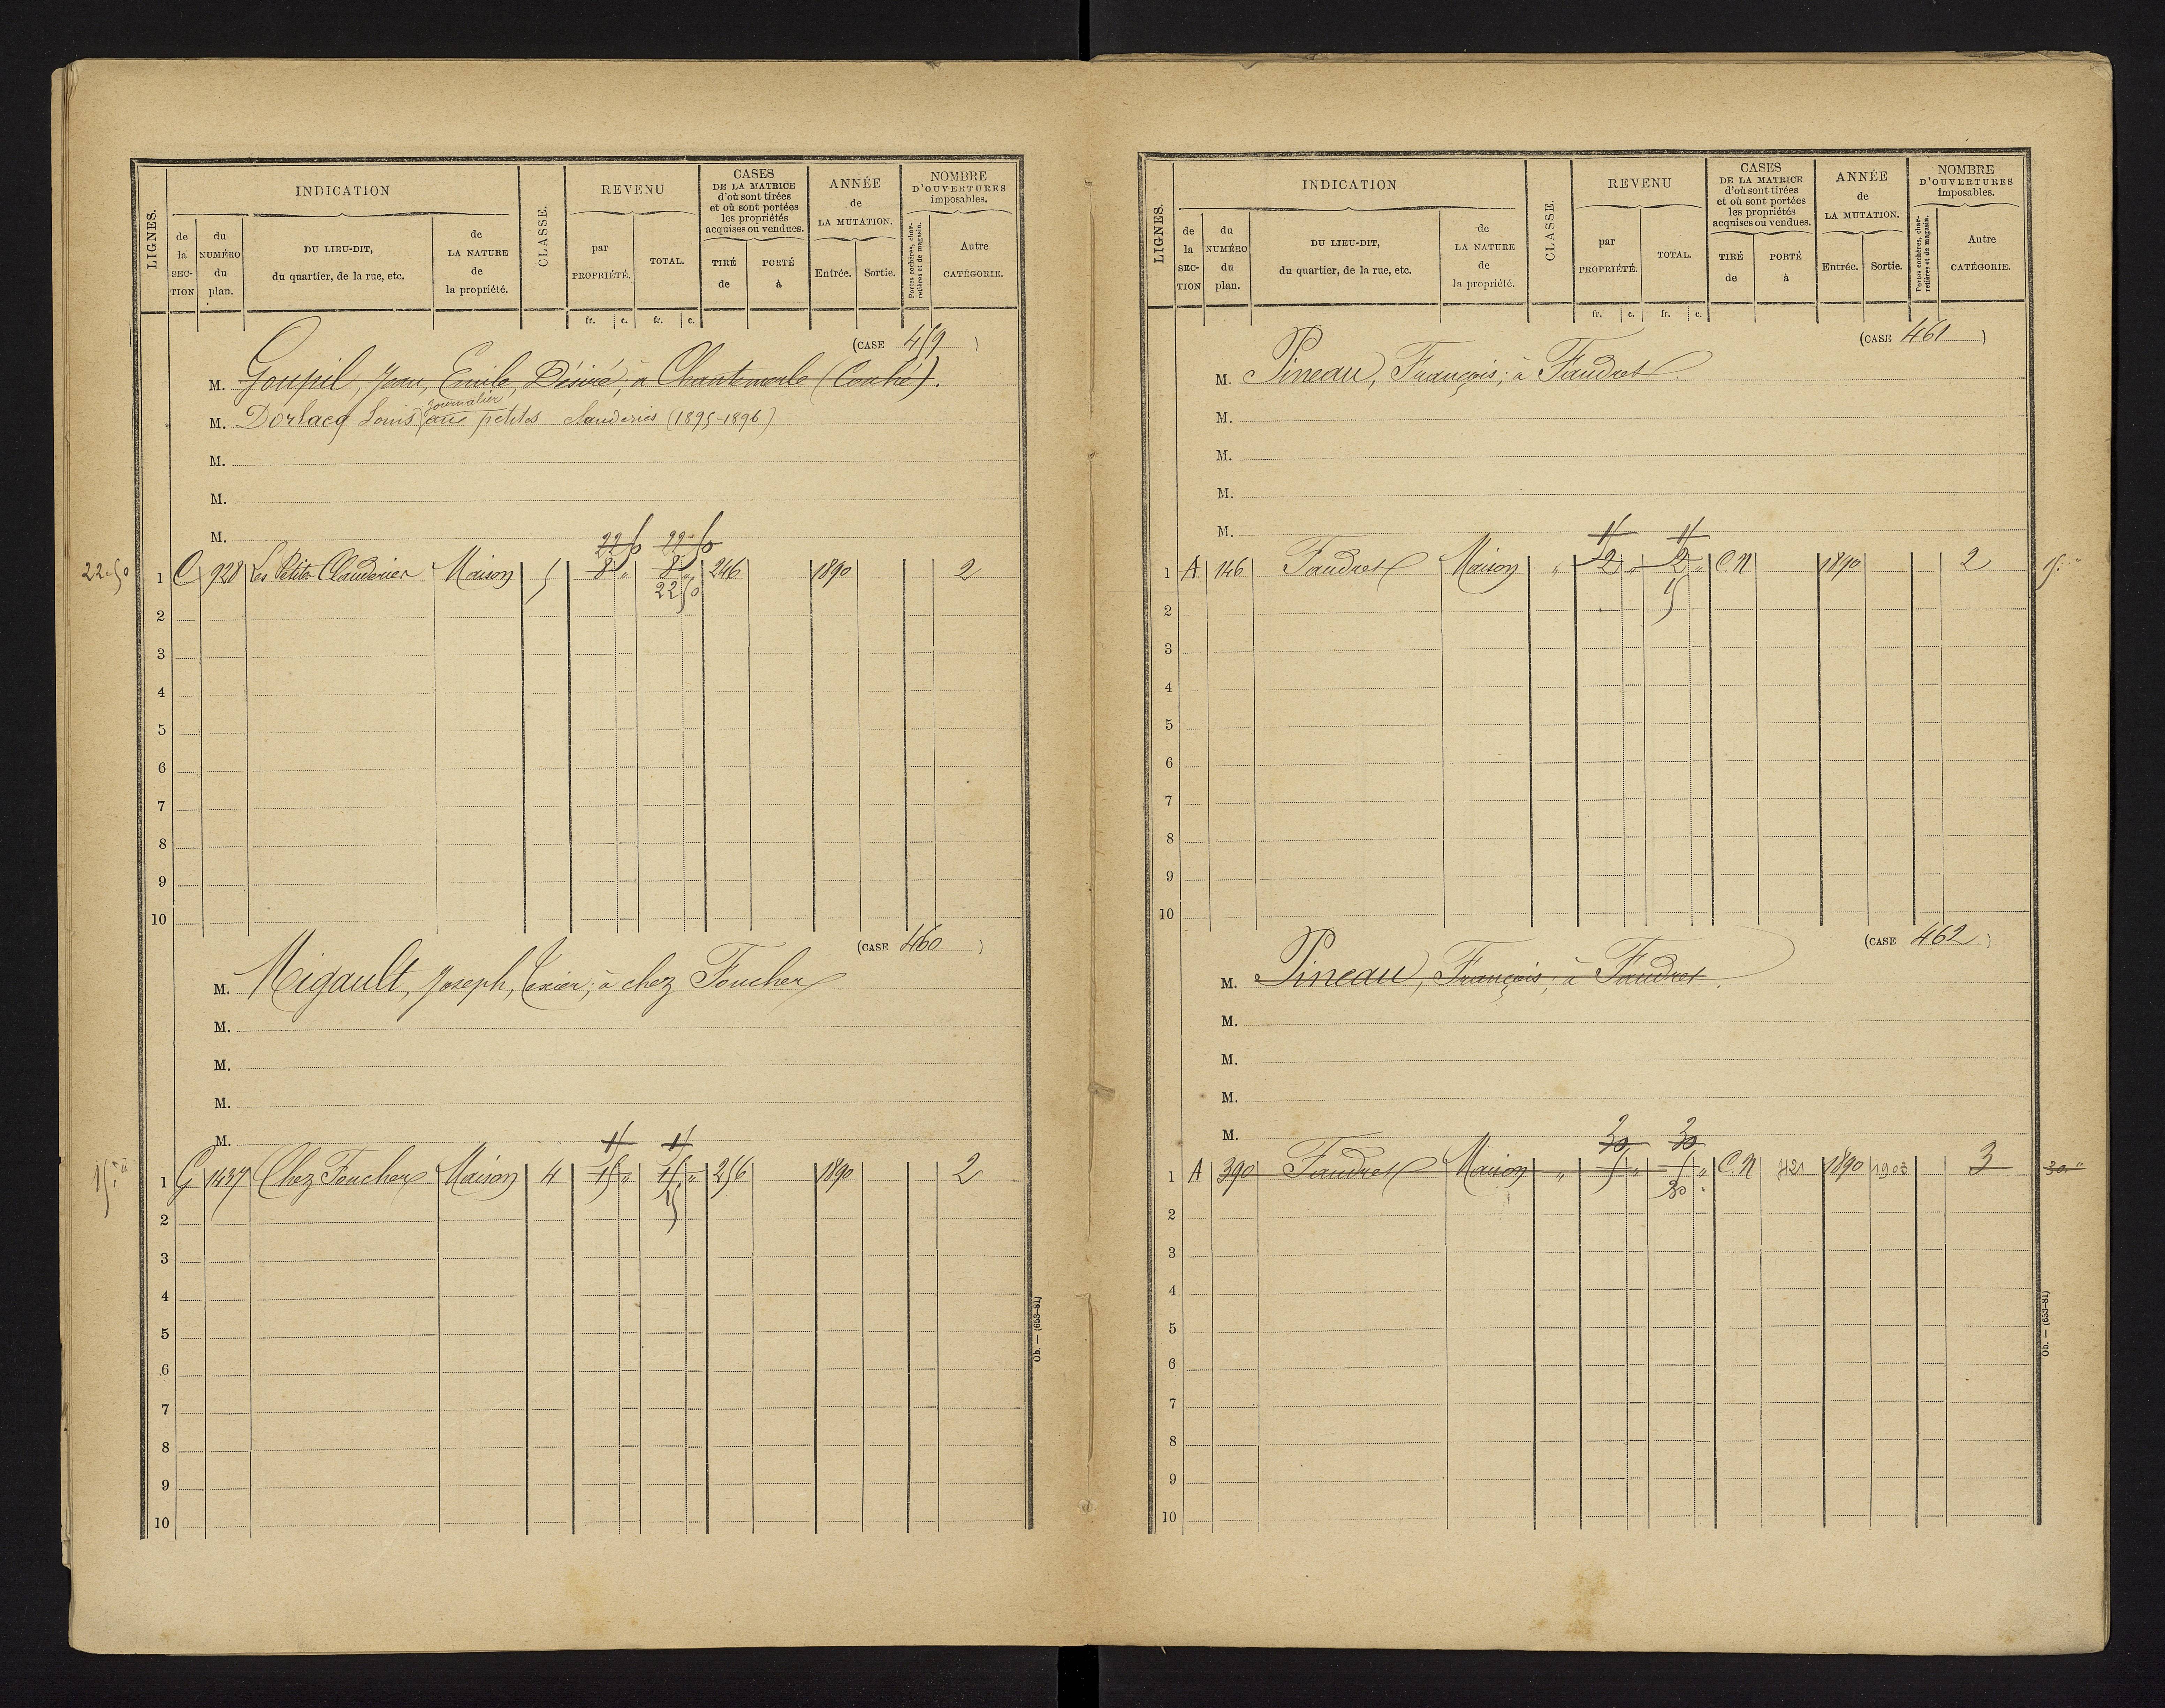 LIGNES.
INDICATION
de la SECTION
du NUMÉRO du plan.
DU LIEU-DIT, du quartier, de la rue, etc.
de LA NATURE de la propriété.
CLASSE.
REVENU
par PROPRIÉTÉ.
TOTAL.
fr. c. fr. c.
CASES DE LA MATRICE d'où sont tirées et où sont portées les propriétés acquises ou vendues.
TIRÉ de
PORTÉ à
ANNÉE de LA MUTATION.
Entrée. Sortie.
NOMBRE D'OUVERTURES imposables.
Portes cochères, charretières et de magasin.
Autre CATÉGORIE.
(CASE 459)
M. Goupil, Jean, Emile, Désiré, à Chantemerle (Couhé).
journalier
M. Dorlacq Louis aux petites Clauderies (1895-1896)
M.
M.
M.
22 50 22 50
22.50 1 C 928 Les Petites Clauderies Maison 5 8 " 8 " 246 1890 2
22 50
2
3
4
5
6
7
8
9
10
(CASE 460)
M. Migault, Joseph, Texier; à chez Foucher
M.
M.
M.
M.
15 1 G 1437 Chez Foucher Maison 4 15 " 15 " 256 1890 2
15
2
3
4
5
6
7
8
9
10
Ob. — (653-81)
LIGNES.
INDICATION
de la SECTION
du NUMÉRO du plan.
DU LIEU-DIT, du quartier, de la rue, etc.
de LA NATURE de la propriété.
CLASSE.
REVENU
par PROPRIÉTÉ.
TOTAL.
fr. c. fr. c.
CASES DE LA MATRICE d'où sont tirées et où sont portées les propriétés acquises ou vendues.
TIRÉ de
PORTÉ à
ANNÉE de LA MUTATION.
Entrée. Sortie.
NOMBRE D'OUVERTURES imposables.
Portes cochères, charretières et de magasin.
Autre CATÉGORIE.
(CASE 461)
M. Pineau, François; à Faudret
M.
M.
M.
M.
1 A 146 Faudret Maison " 2 " 2 " C.N 1890 2 15
15
2
3
4
5
6
7
8
9
10
(CASE 462)
M. Pineau, François; à Faudret.
M.
M.
M.
M.
30 30
1 A 390 Faudret Maison " 5 " 5 " C.N 421 1890 1903 3 30
30
2
3
4
5
6
7
8
9
10
Ob. — (653-81)